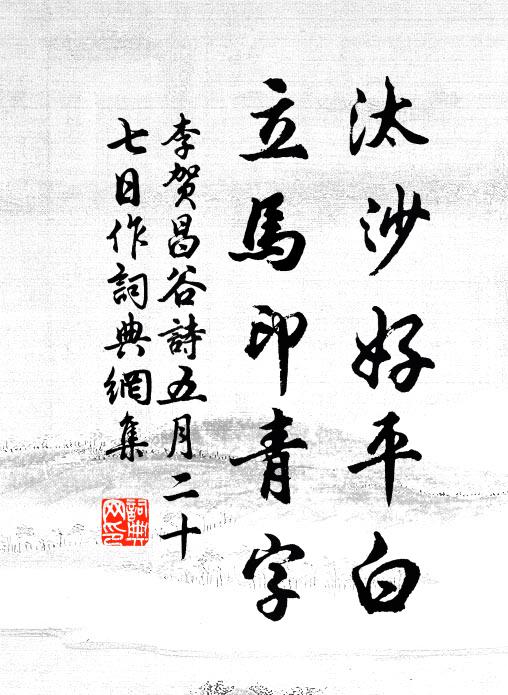 汰沙好平白
立馬印青字
李賀昌谷詩五月二十
七日作詞典網集
詞典
网印